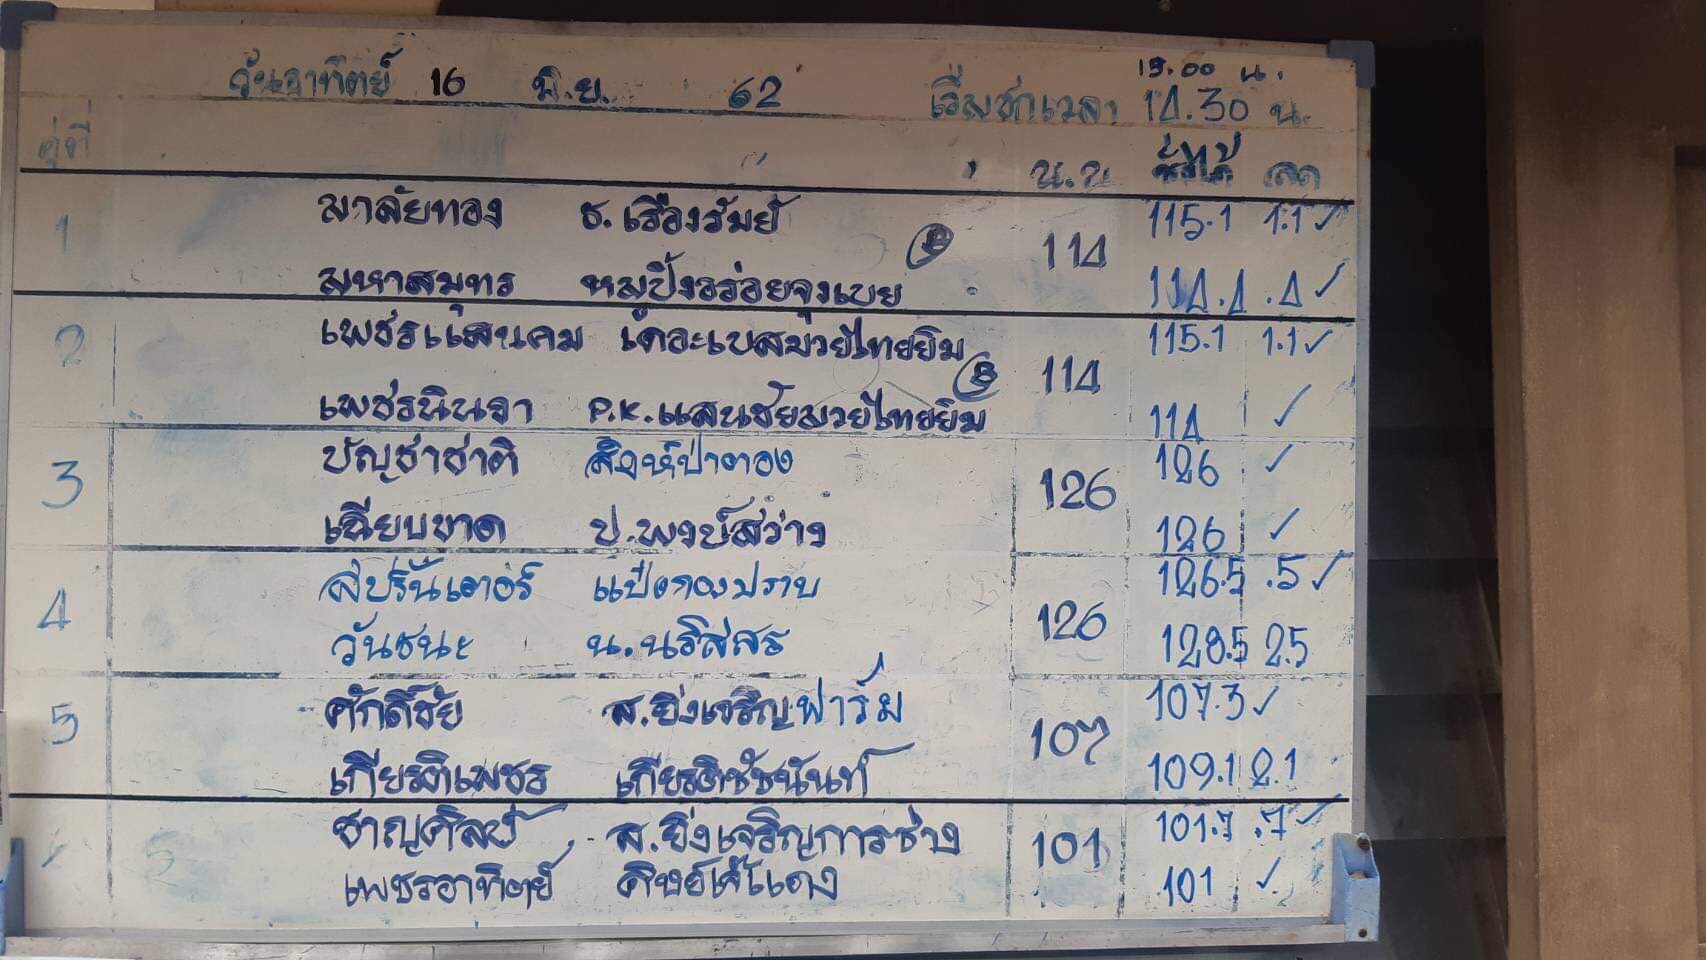 19.00 น.
วันอาทิตย์ 16 มิ.ย. 62 เริ่มชกเวลา 14.30 น.
คู่ที่ น.น. ชั่งได้ ลด
มาลัยทอง ธ.เรืองรัมย์ 115.1 1.1 ✓
1 B 114
มหาสมุทร หมูปิ้งอร่อยจุงเบย 114.4 .4 ✓
เพชรแสนคม เดอะเบสมวยไทยยิม 115.1 1.1 ✓
2 B 114
เพชรนินจา P.K.แสนชัยมวยไทยยิม 114 ✓
บัญชาชาติ สิงห์ป่าตอง 126 ✓
3 126
เฉียบขาด ป.พงษ์สว่าง 126 ✓
สปริ้นเตอร์ แป๊ะกองปราบ 126.5 .5 ✓
4 126
วันชนะ น.นริสสร 128.5 2.5
ศักดิ์ชัย ส.ยิ่งเจริญฟาร์ม 107.3 ✓
5 107
เกียรติเพชร เกียรติชัชนันท์ 109.1 2.1
ชาญศิลป์ ส.ยิ่งเจริญการช่าง 101.7 .7 ✓
101
เพชรอาทิตย์ ศิษย์เจ๊แดง 101 ✓